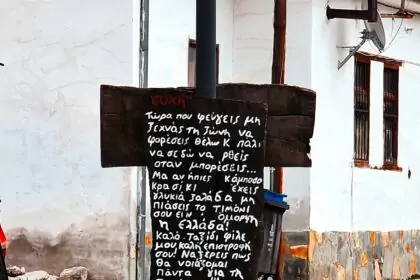 ΕΥΧΗ
Τώρα που φεύγεις μη
ξεχνάς τη ζώνη να
φορέσεις θέλω κ πάλι
να σε δω να ρθεις
όταν μπορέσεις...
Μα αν ήπιες κάμποσο
κρασί κι έχεις
γλυκιά ζαλάδα μη
πιάσεις το τιμόνι
σου ειν' όμορφη
η Ελλάδα!
καλό ταξίδι φίλε
μου καλή επιστροφή
σου να ξέρεις πως
θα νοιάζομαι
πάντα για τη